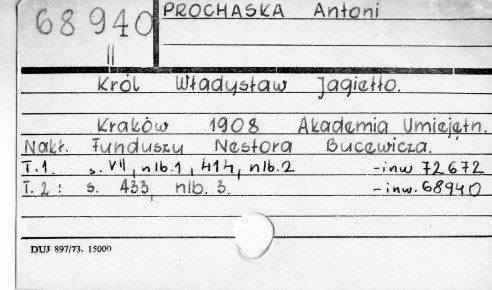 68940
II
PROCHASKA Antoni
Król Władysław Jagiełło.
Kraków 1908 Akademia Umiejętn.
Nakł. Funduszu Nestora Bucewicza.
T.1. s. VII, nlb.1, 414, nlb.2 -inw 72672
T.2: s. 433, nlb. 3. -inw. 68940
DUJ 897/73. 15000